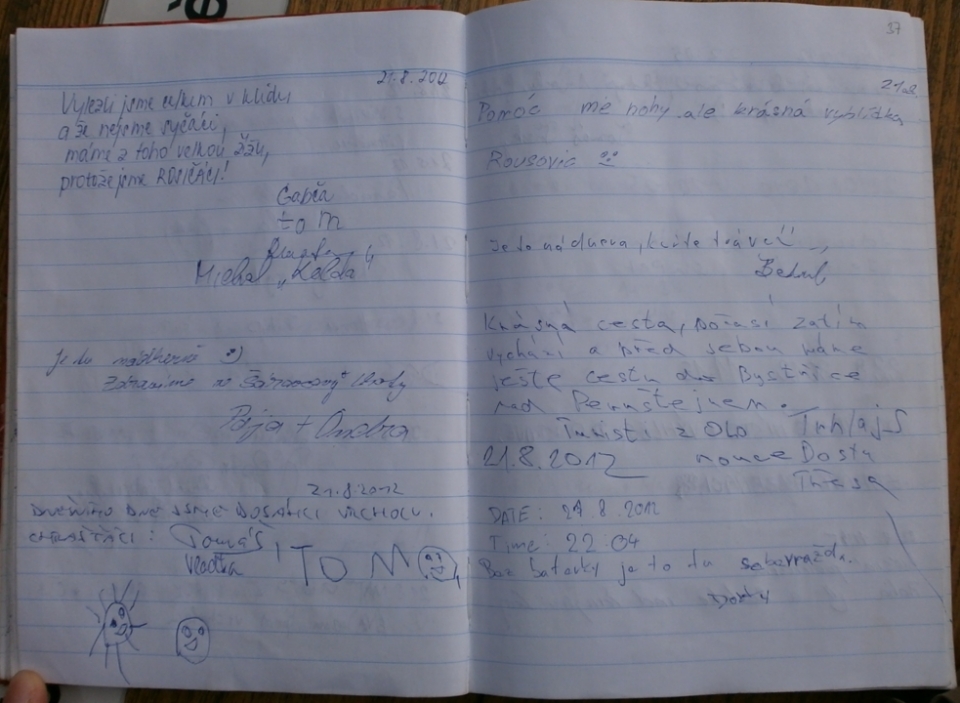 21.8.2012
Vylezli jsme celkem v klidu
a že nejsme syčáci,
máme z toho velkou žížu,
protože jsme ROSIČÁCI!
Gabča
tom
Michal „Kalda"
Je tu nádherně :)
Zdravíme ze
Pája + Ondra
21.8.2012
DNEŠNÍHO DNE JSME DOSÁHLI VRCHOLU.
CHRASŤÁCI: Tomáš
Vlaďka TOM
37
21.8.
Pomóc mé nohy ale krásná vyhlídka
Rousovic
Je to nádhera,
Krásná cesta, počasí zatím
vychází a před sebou máme
ještě cestu do Bystřice
nad Pernštejnem.
Turisti z Olo
21.8.2012 mouce Dostu
Terasa
DATE: 21.8.2012
Time: 22:04
Bez baterky je to tu sebevražda.